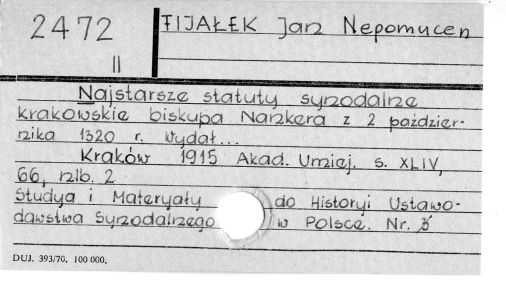 2472
II
FIJAŁEK Jan Nepomucen
Najstarsze statuty synodalne
krakowskie biskupa Nankera z 2 paździer-
nika 1320 r. wydał...
Kraków 1915 Akad. Umiej. s. XLIV,
66, nlb. 2
Studya i Materyały do Historyi Ustawo-
dawstwa Synodalnego w Polsce. Nr. 3
DUJ. 393/70. 100 000.